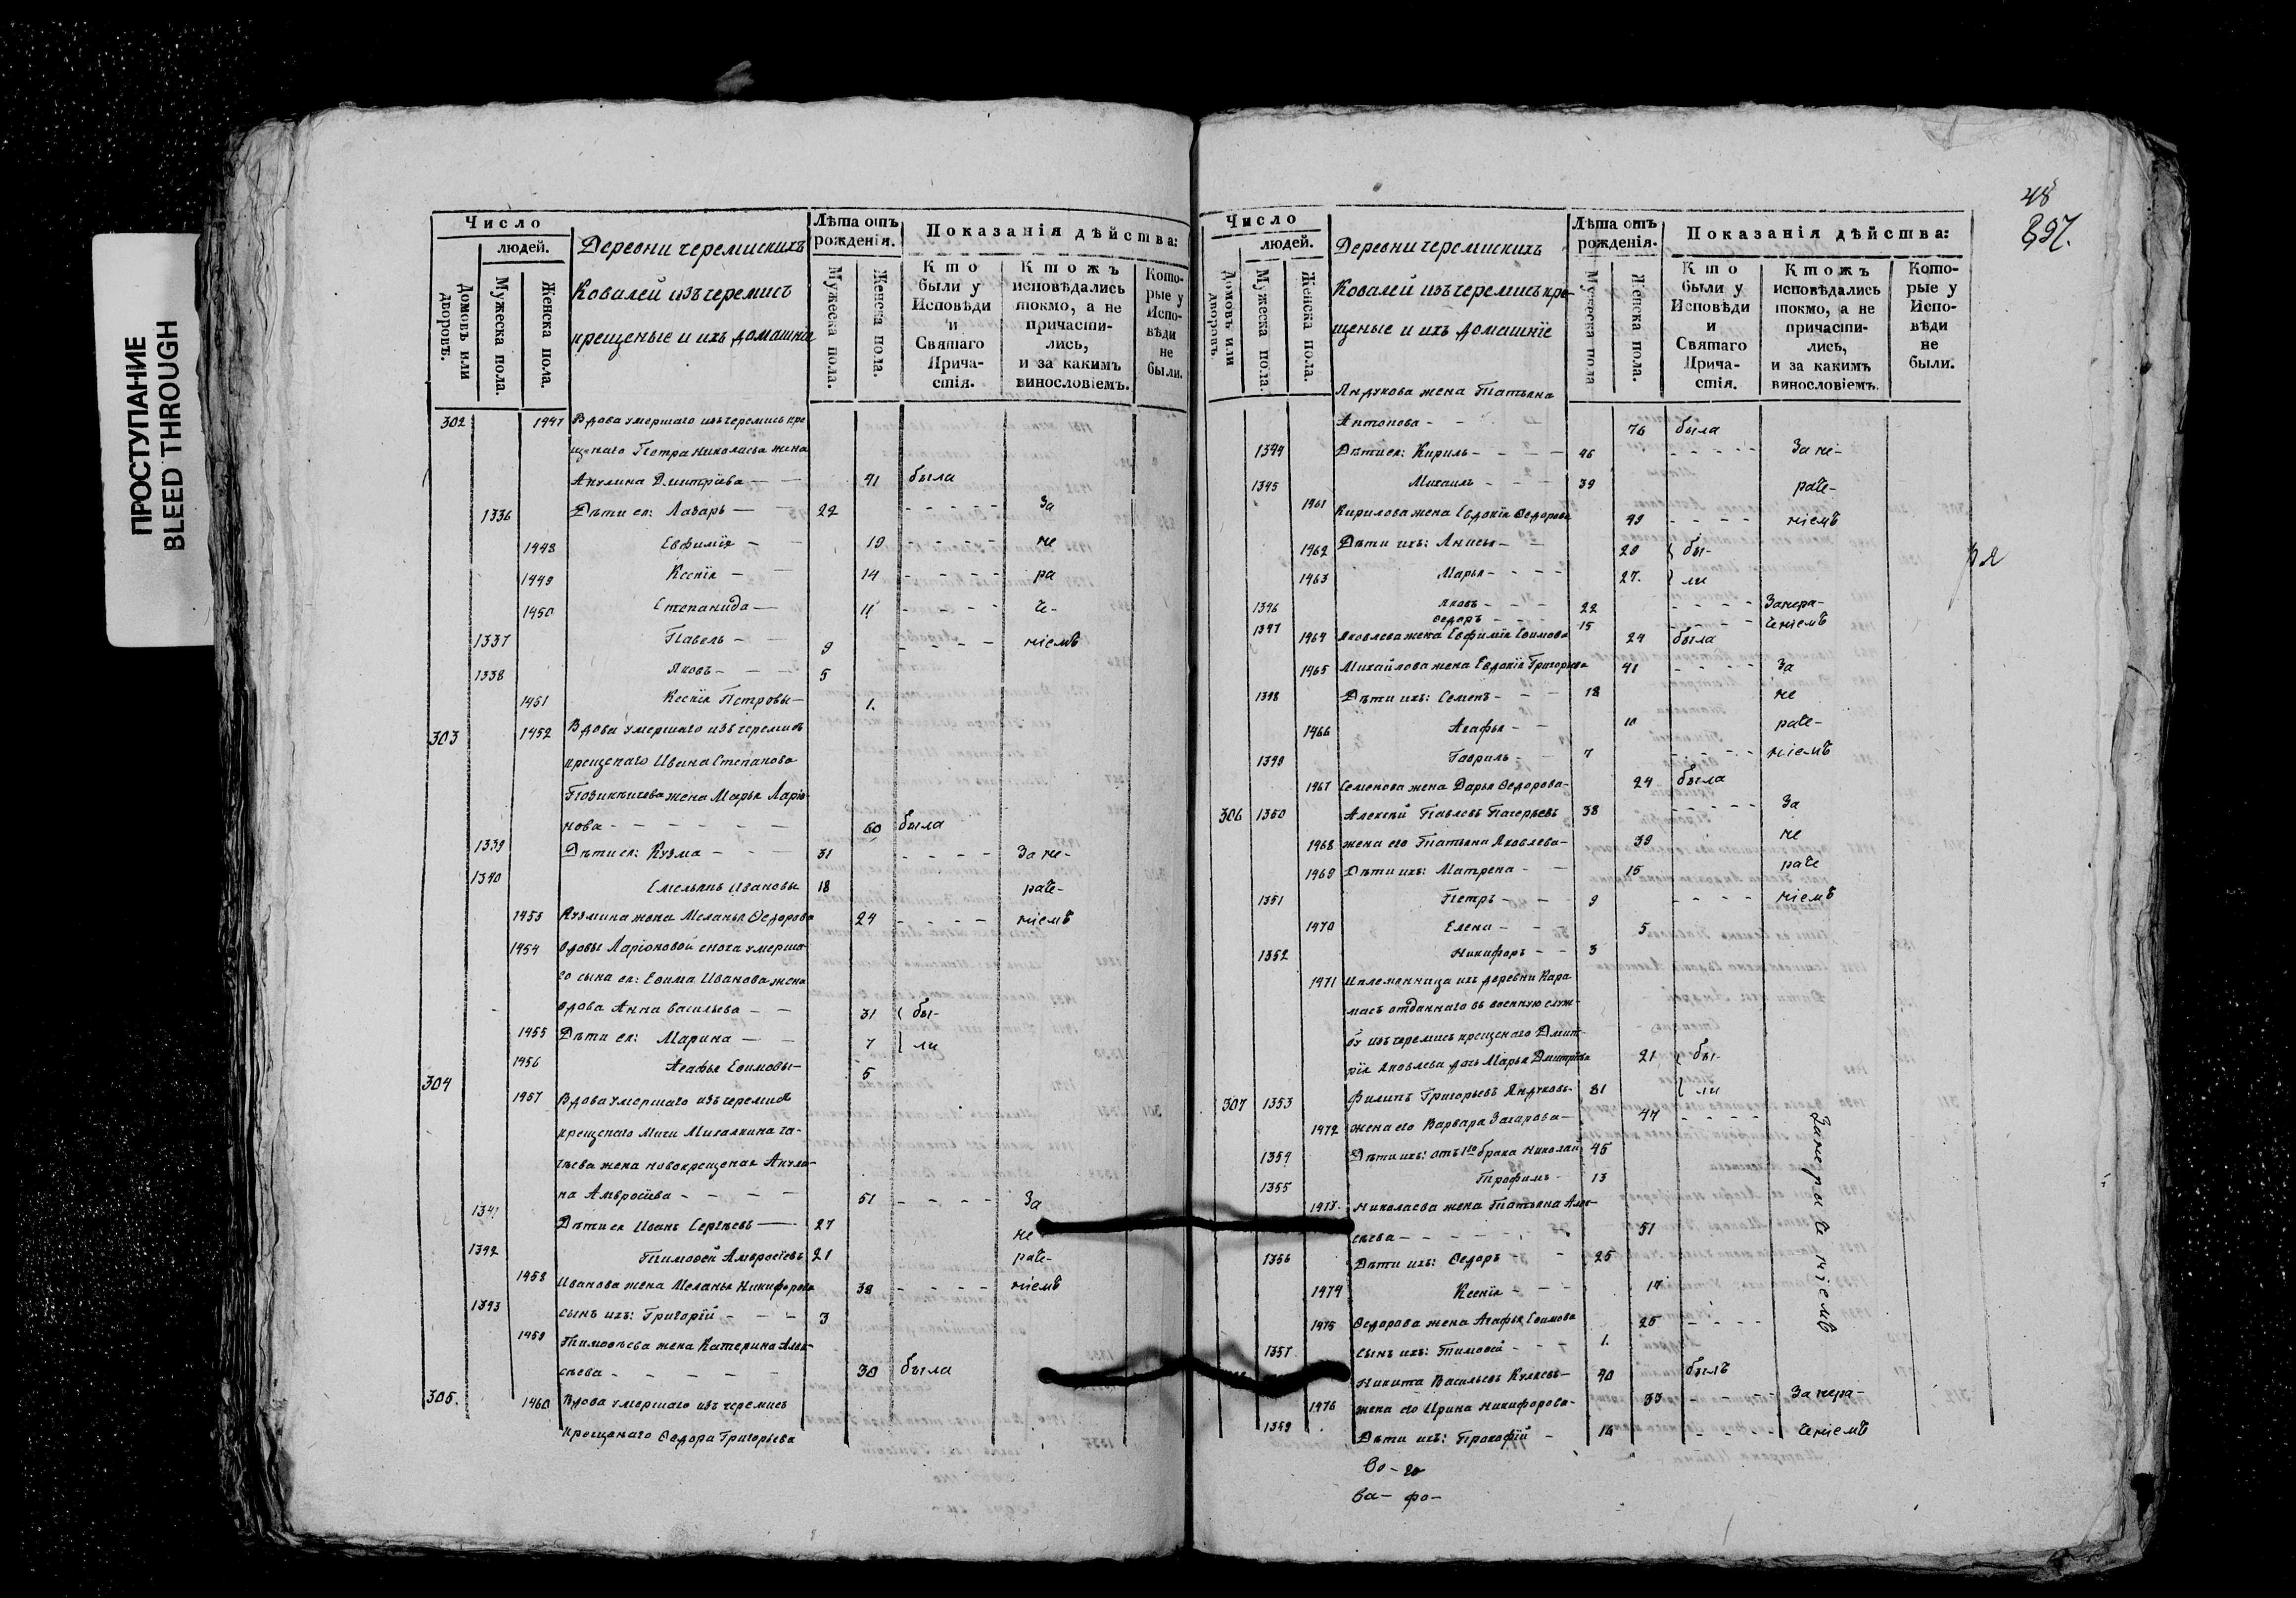 ПРОСТУПАНИЕ
BLEED THROUGH
Число
людей.
Домовъ или дворовъ.
Мужеска пола.
Женска пола.
Деревни черемискихъ
Ковалей изъ черемисъ
крещеные и ихъ домашніе
Лѣта отъ рожденія.
Мужеска пола.
Женска пола.
Показанія дѣйства:
Кто были у Исповѣди и Святаго Прича- стія.
Ктожъ исповѣдались токмо, а не причасти- лись, и за какимъ винословіемъ.
Кото- рые у Испо- вѣди не были.
302 1447 Вдова умершаго изъ черемисъ кре
щенаго Петра Николаева жена
Акулина Дмитріева — — 41 была
1336 Дѣти ея: Лазарь — — 22 - - - - - За
1448 Евфимія — — 19 - - - - не
1449 Ксенія — — 14 - - - - ра
1450 Степанида — 11 - - - - че-
1337 Павелъ — — 9 - - - - ніемъ
1338 Яковъ — — — 5
1451 Ксенія Петровы — 1.
303 1452 Вдова умершаго изъ черемисъ
крещенаго Ивана Степанова
жена Марья Ларіо-
нова — — — — — — 60 была
1339 Дѣти ея: Кузма — — — 31 - - - - За не-
1340 Емельянъ Ивановы 18 раче-
1453 Кузмина жена Меланья Ѳедорова 24 - - - - ніемъ
1454 вдовы Ларіоновой сноха умерша-
го сына ея: Ефима Иванова жена
вдова Анна Васильева — — 31 бы-
1455 Дѣти ея: Марина — — 7 ли
1456 Агафья Ефимовы — 5
304 1457 Вдова умершаго изъ черемисъ
крещенаго
жена новокрещеная Акули-
на Амвросіева — — — — 51 - - - - За
1341 Дѣти ея Иванъ Сергѣевъ — 27 не
1342 Тимофей Амвросіевъ 21 раче-
1458 Иванова жена Меланья Никифорова 38 - - - - ніемъ
1343 сынъ ихъ: Григорій — — — 3
1459 Тимофѣева жена Катерина Алек-
сѣева — — — — — — 30 была
305. 1460 Вдова умершаго изъ черемисъ
крещенаго Ѳедора Григорьева
48
Число
людей.
Домовъ или дворовъ.
Мужеска пола.
Женска пола.
Деревни черемискихъ
Ковалей изъ черемисъ кре-
щеные и ихъ домашніе
Лѣта отъ рожденія.
Мужеска пола
Женска пола.
Показанія дѣйства:
Кто были у Исповѣди и Святаго Прича- стія.
Ктожъ исповѣдались токмо, а не причасти- лись, и за какимъ винословіемъ.
Кото- рые у Испо- вѣди не были.
Яндукова жена Татьяна
Антонова — — 76 была
1344 Дѣти ея: Кирилъ — — — — 46 - - - - - За не-
1345 Михаилъ — — — 39 раче-
1461 Кирилова жена Евдокія Ѳедорова 49 - - - - ніемъ
1462 Дѣти ихъ: Анисья — — 20 бы-
1463 Марья — — — — 27. ли
1346 Яковъ — — — 22 - - - - Занера-
1347 Ѳедоръ — — — 15 - - - - ченіемъ
1464 Яковлева жена Евфимія Ефимова 24 была
1465 Михайлова жена Евдокія Григорьева 41 - - - - За
1348 Дѣти ихъ: Семенъ — — — 18 не
1466 Агафья — — 10 раче-
1349 Гаврилъ — — 7 - - - - - ніемъ
1467 Семенова жена Дарья Ѳедорова — 24 была
306 1350 Алексѣй Павловъ 38 - - - - - За
1468 жена его Татьяна Яковлева — 39 не
1469 Дѣти ихъ: Матрена — — 15 раче
1351 Петръ — — 9 - - - - ніемъ
1470 Елена — — 5
1352 Никифоръ — — 3
1471 Племянница ихъ деревни Кара
масъ отданнаго въ военную служ-
бу изъ черемисъ крещенаго Дмит-
рія Яковлева дочь Марья Дмитріева 21 бы-
307 1353 Филипъ Григорьевъ Яндуковъ 81 ли
1472 жена его Варвара Захарова — 47 - - - -
1354 Дѣти ихъ: отъ 1го брака Николай 45
1355 Трофимъ — 13
1473. Николаева жена Татьяна Алек-
сѣева — — — — — 51
1356 Дѣти ихъ: Ѳедоръ — — 25
1474 Ксенія — — — 17
1475 Ѳедорова жена Агафья Ефимова 25 - - - -
Занераченіемъ
1357 сынъ ихъ: Тимофей — — 1.
Никита Васильевъ 40 былъ
1476 жена его Ирина Никифорова — 33 - - - - - За нера-
1359 Дѣти ихъ: Прокофій — 14 - - - - ченіемъ